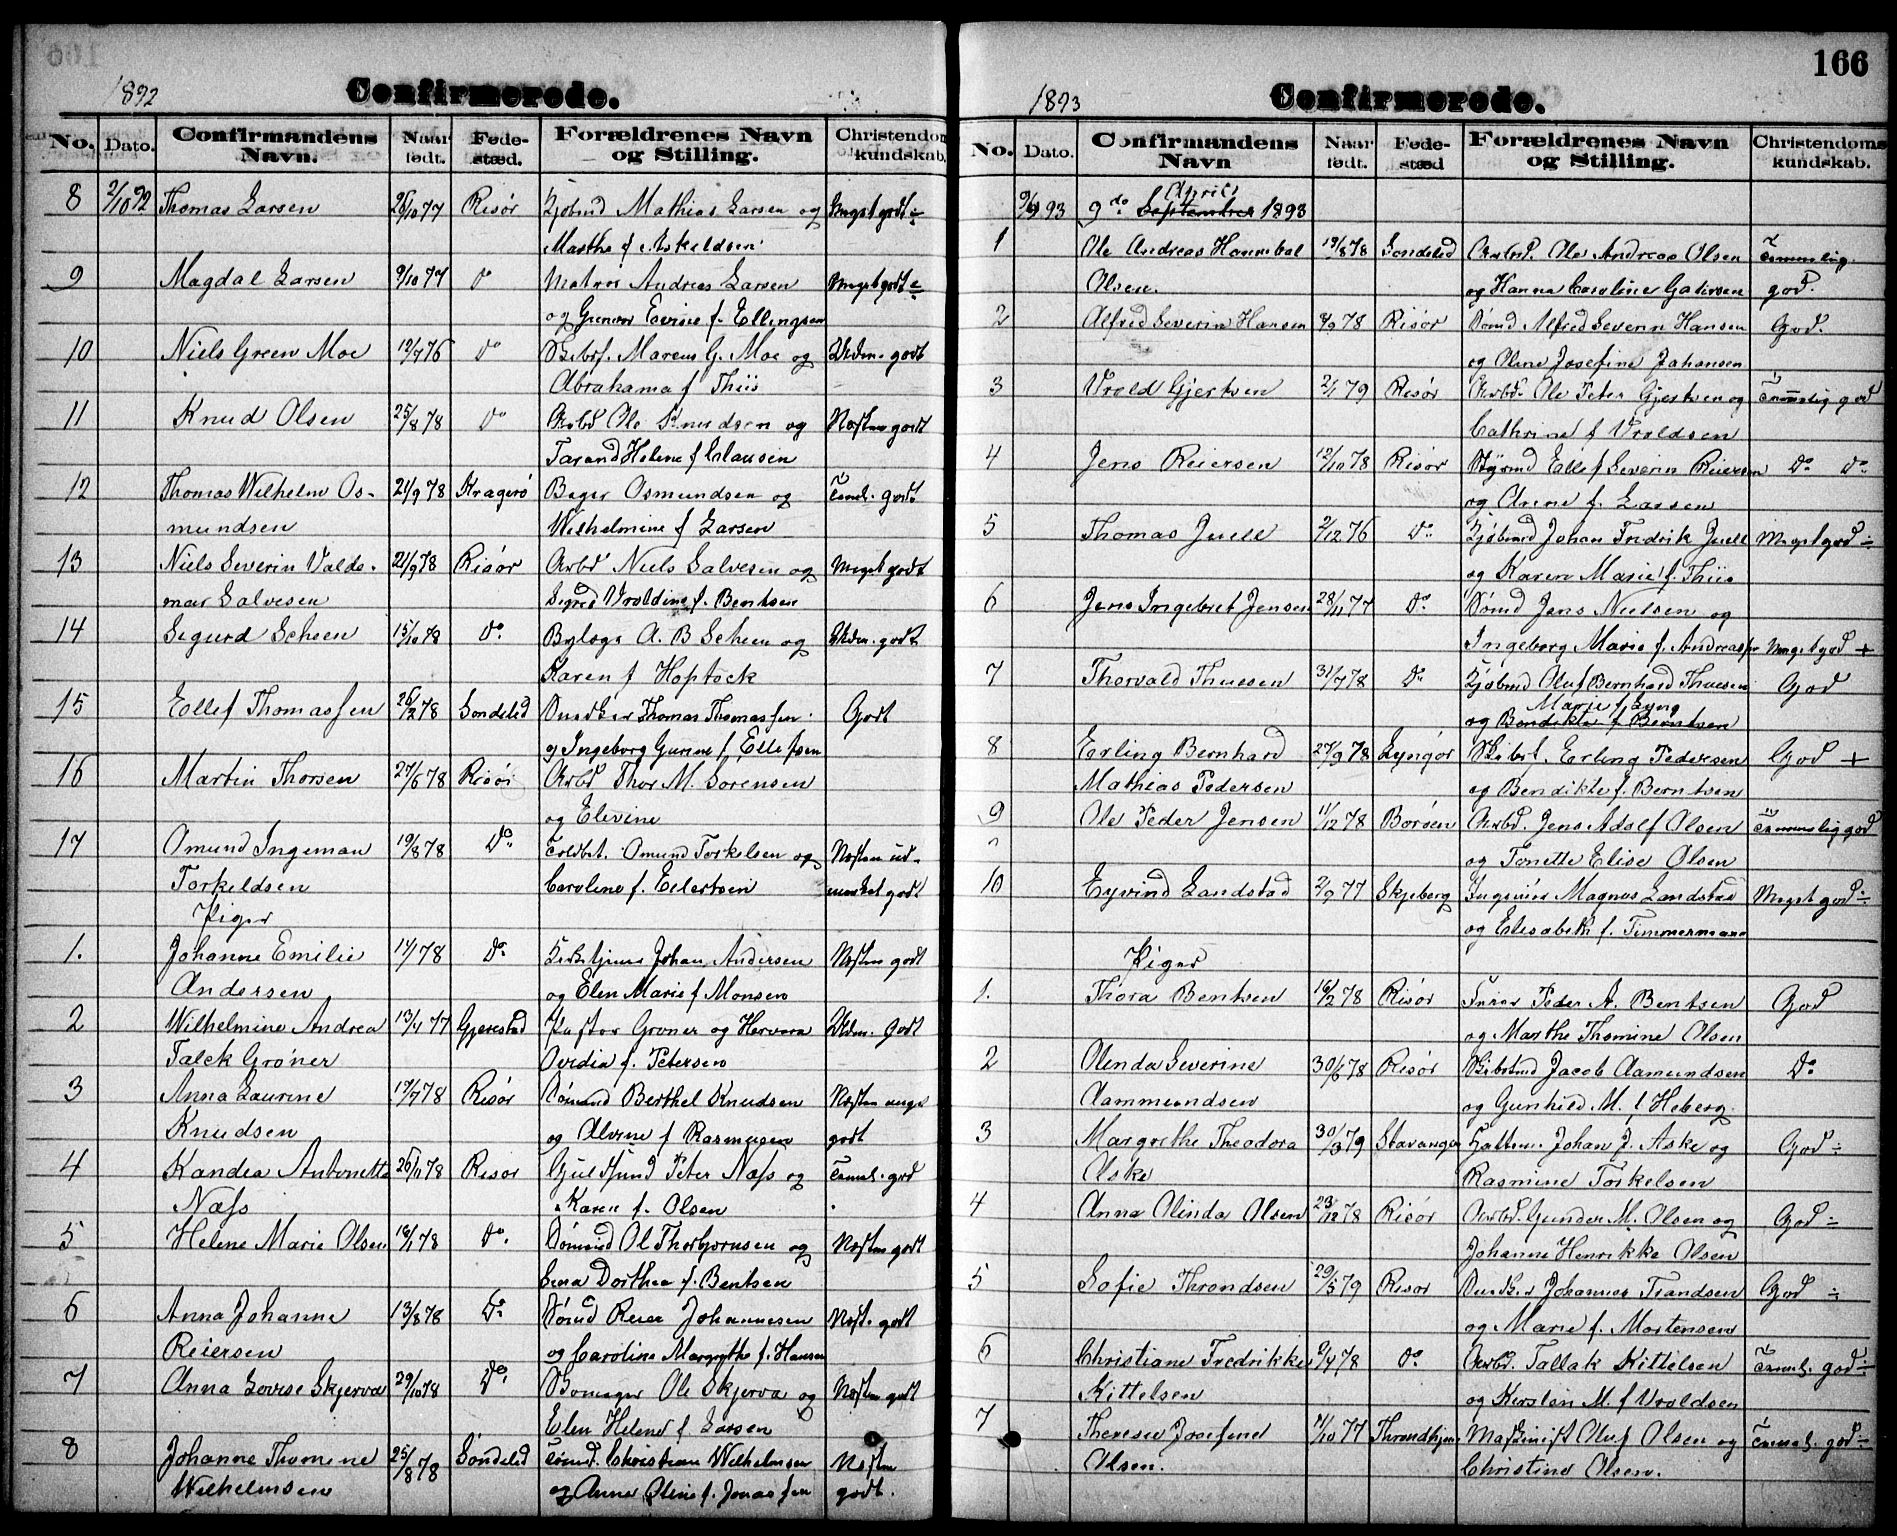 166
1892 Confirmerede.
No. Dato. Confirmandens Navn. Naar født. Fødested. Forældrenes Navn og Stilling. Christendomskundskab.
8 2/10 92 Thomas Larsen 26/10 77 Risør Kjøbmd Mathias Larsen og Meget godt ÷
Marthe f. Askeldsen
9 Magdal Larsen 9/10 77 do Matros Andreas Larsen Meget godt ÷
og Gunvor Evine f. Ellingsen
10 Niels Green Moe 12/7 76 do Skibsf. Marcus G. Moe og Udm. godt
Abrahama f Thiis
11 Knud Olsen 25/8 78 do Arbd Ole Knudsen og Næsten godt
Taran Helene f Clausen
12 Thomas Wilhelm Os- 21/9 78 Kragerø Bager Osmundsen og Temml. godt
mundsen Wilhelmine f Larsen
13 Niels Severin Valde- 21/9 78 Risør Arbd Niels Salvesen og Meget godt
mar Salvesen Sigrid Uroldine f. Bentsen
14 Sigurd Scheen 15/10 78 do Bylæge A. B Scheen og Udm. godt
Karen f Hoptock
15 Ellef Thomassen 26/2 78 Søndeled Snedker Thomas Thomassen Godt
og Ingeborg Gurine f. Ellefsen
16 Martin Thorsen 27/6 78 Risør Arbd Thor M. Sørensen
og Elevine
17 Omund Ingeman 19/8 78 Do Toldbet. Omund Torkelsen og Næsten ud-
Torkeldsen Caroline f. Eilertsen mærket godt
Piger
1. Johanne Emilie 17/1 78 Do Kirketjener Johan Andersen Næsten godt
Andersen og Elen Marie f Monsen
2 Wilhelmine Andrea 13/4 77 Gjerestad Pastor Grøner og Hervora Udm. godt
Falck Grøner Ovidia f. Petersen
3 Anna Laurine 19/7 78 Risør Sømand Berthel Knudsen Næsten meget
Knudsen og Alvine f Rasmusen godt
4 Kandea Antonette 26/11 78 Risør Guldsmd Peter Næss og Temml. god
Næss Karen f. Olsen
5 Helene Marie Olsen 16/1 78 Do. Sømand Ol Thorbjørnsen og Næsten godt
Lina Dorthea f. Bentsen
6 Anna Johanne 13/8 78 Do Sømd Reier Johannesen Næst. godt
Reiersen og Caroline Margrethe f. Hansen
7 Anna Lovise Skjerva 29/10 78 Do Ole Skjerva og Næsten godt
Elen Helene f Larsen
8 Johanne Thomine 25/8 78 Søndeled Tømd. Christian Wilhelmsen Næsten
Wilhelmsen og Anne Oline f. Jonassen godt.
1893 Confirmerede.
No. Dato. Confirmandens Navn Naar født. Fødested Forældrenes Navn og Stilling. Christendomskundskab.
April
9/4 93 9de September 1893
1 Ole Andreas Hannibal 19/8 78 Søndeled Arbd. Ole Andreas Olsen Temmelig
Olsen. og Hanna Caroline Gabrielsen god.
2 Alfred Severin Hansen 8/9 78 Risør Sømd Alfred Severin Hansen God.
og Oline Josefine Johansen
3 Vrold Gjertsen 2/1 79 Risør Arbd. Ole Peter Gjertsen og Temmelig god
Cathrine f Vroldsen
4 Jens Reiersen 12/10 78 Risør Styrmd Ellef Severin Reiersen do do
og Anne f. Larsen
5 Thomas Juell 2/12 76 Do Kjøbmd Johan Fredrik Juell Meget god ÷
og Karen Marie f. Thiis
6 Jens Ingebret Jensen 28/11 77 Do Sømd Jens Nielsen og
Ingeborg Marie f. Andreassen Meget god +
7 Thorvald Thuesen 31/7 78 Do Kjøbmd Oluf Bernhard Thuesen God
Marie f Lyng
og Bendikte f Berntsen
8 Erling Bernhard 27/9 78 Lyngør Skibsf. Erling Pedersen God +
Mathias Pedersen og Bendikte f. Berntsen
9 Ole Peder Jensen 11/12 78 Borøen Arbd. Jens Adolf Olsen Temmelig god
og Tonette Elise Olsen
10 Eyvind Landstad 2/9 77 Skjeberg Ingeniør Magnus Landstad Meget god ÷
og Elisabeth f. Timmermann
Piger
1. Thora Bentsen 16/2 78 Risør Peder A. Bentsen God
og Marthe Thomine Olsen
2 Olenda Severine 30/6 78 Risør Skibstmd Jacob Aamundsen Do
Aammundsen og Gunhild M. f Heberg.
3 Margrethe Theodora 30/3 79 Stavanger Hattem. Johan J. Aske og God ÷
Aske Rasmine Torkelsen
4 Anna Olinda Olsen 23/12 78 Risør Arbd. Gunder M. Olsen og God ÷
Johanne Henrikke Olsen
5 Sofie Throndsen 29/5 79 Risør Snedker Johannes Trandsen God ÷
og Marie f. Mortensen
6 Christiane Fredrikke 9/4 78 do Arbd. Tallak Kittelsen Temml. god ÷
Kittelsen og Kirsten M. f Vroldsen
7 Therese Josefine 7/10 77 Throndhjem Maskinist Oluf Olsen og Temml. god ÷
Olsen. Christine Olsen.